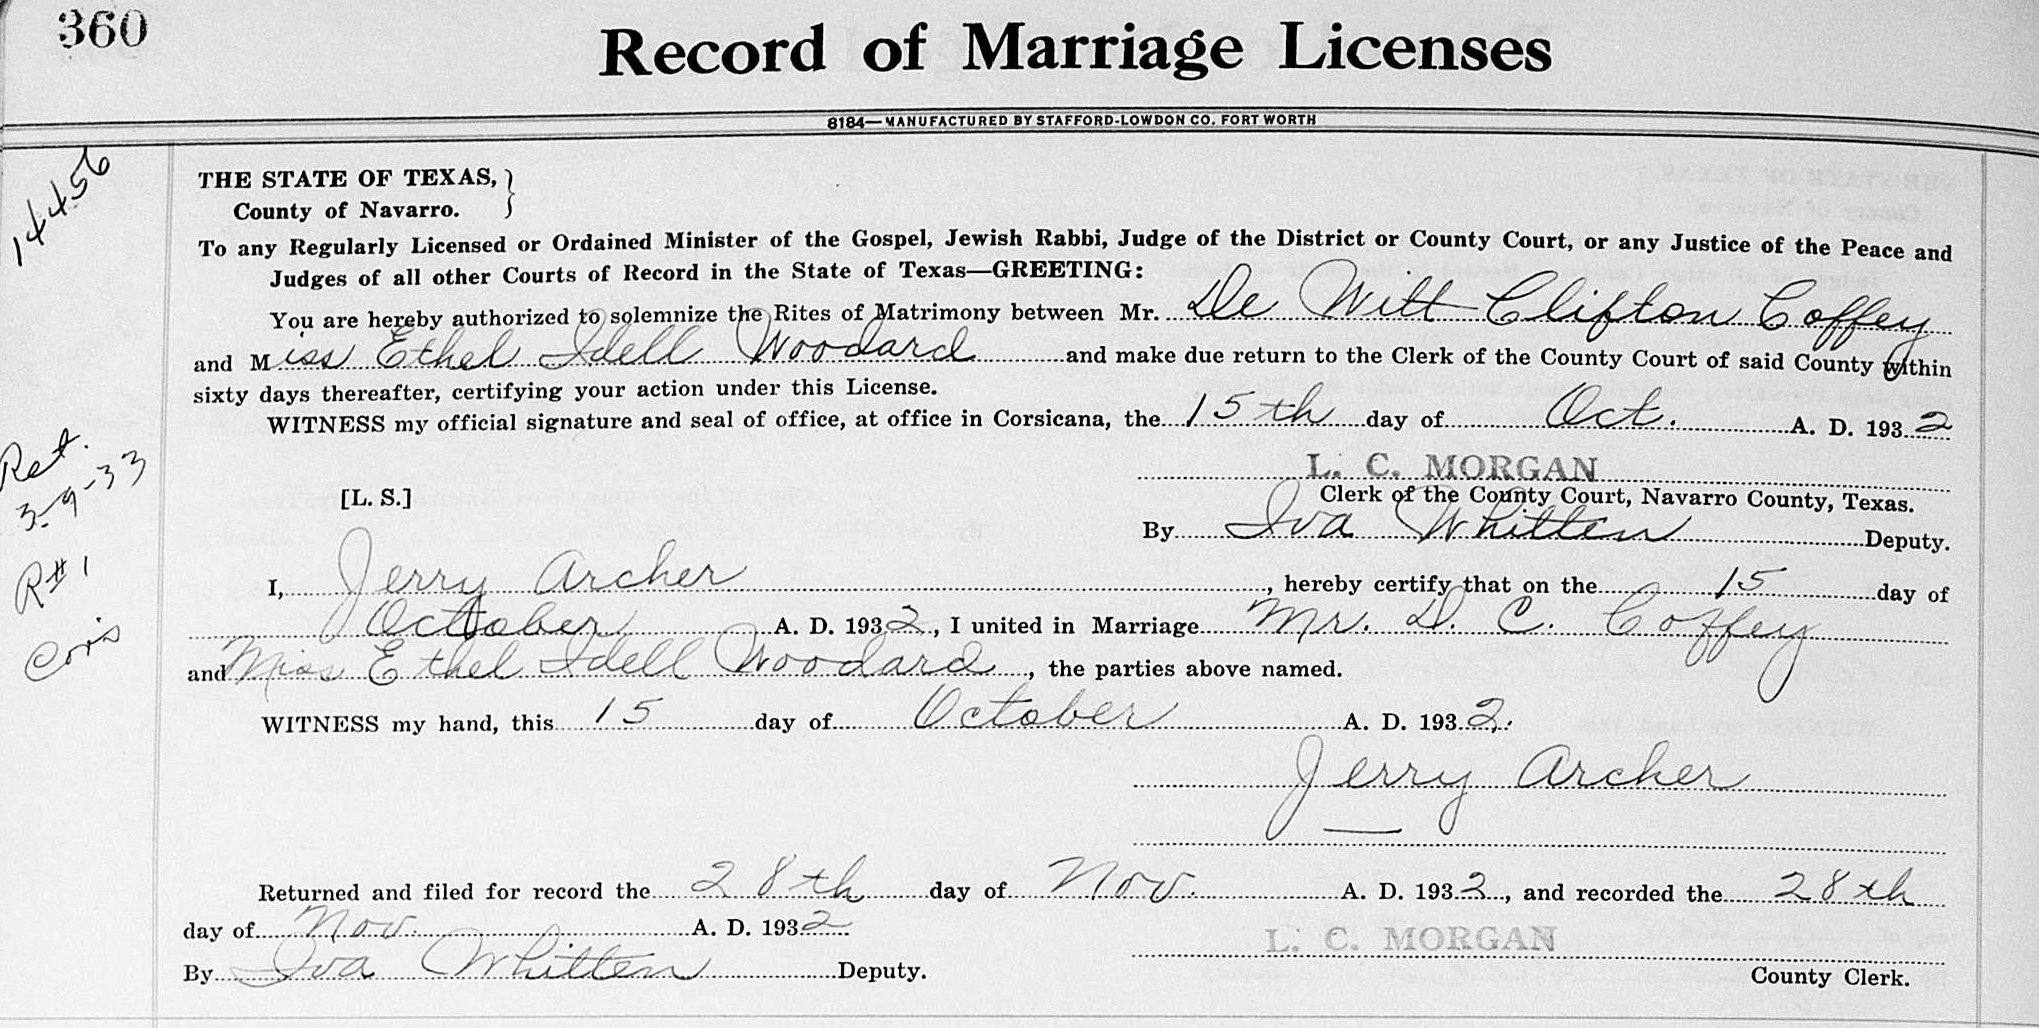 360
Record of Marriage Licenses
8184—MANUFACTURED BY STAFFORD-LOWDON CO. FORT WORTH
14456
THE STATE OF TEXAS, }
County of Navarro.
To any Regularly Licensed or Ordained Minister of the Gospel, Jewish Rabbi, Judge of the District or County Court, or any Justice of the Peace and
Judges of all other Courts of Record in the State of Texas—GREETING:
You are hereby authorized to solemnize the Rites of Matrimony between Mr. De Witt Clifton Coffey
and Miss Ethel Idell Woodard and make due return to the Clerk of the County Court of said County within
sixty days thereafter, certifying your action under this License.
WITNESS my official signature and seal of office, at office in Corsicana, the 15th day of Oct. A. D. 1932
L. C. MORGAN
[L. S.] Clerk of the County Court, Navarro County, Texas.
By Iva Whitten Deputy.
Ret.
3-9-33
R#1
Cors
I, Jerry Archer, hereby certify that on the 15 day of
October A. D. 1932, I united in Marriage Mr. D. C. Coffey
and Miss Ethel Idell Woodard, the parties above named.
WITNESS my hand, this 15 day of October A. D. 1932.
Jerry Archer
Returned and filed for record the 28th day of Nov. A. D. 1932, and recorded the 28th
day of Nov. A. D. 1932
L. C. MORGAN
By Iva Whitten Deputy. County Clerk.